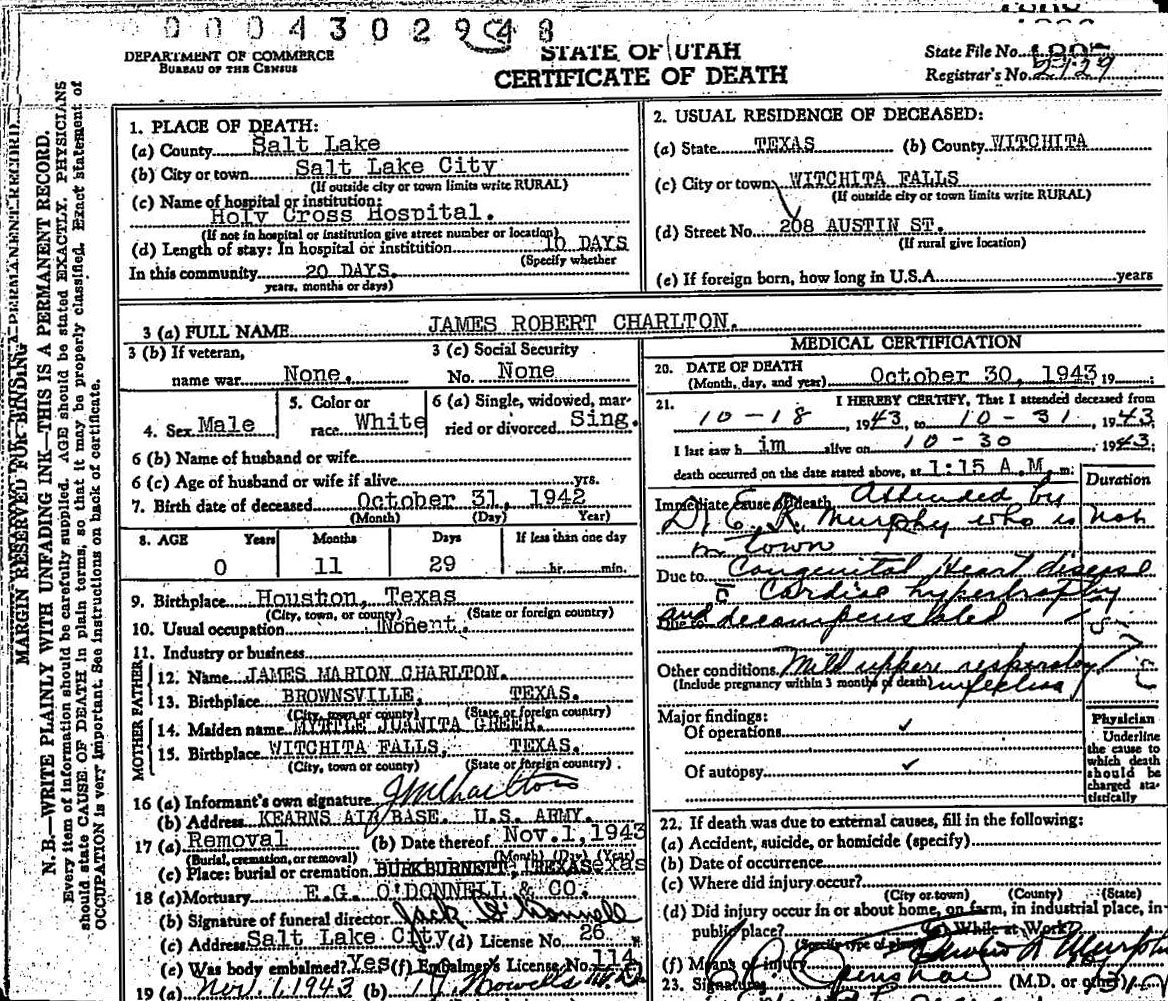 0 0 0 4 3 0 2 9 4 8
DEPARTMENT OF COMMERCE
BUREAU OF THE CENSUS
STATE OF UTAH
CERTIFICATE OF DEATH
State File No.
Registrar's No. 2129
MARGIN RESERVED FOR BINDING
N. B.—WRITE PLAINLY WITH UNFADING INK—THIS IS A PERMANENT RECORD.
Every item of information should be carefully supplied. AGE should be stated EXACTLY. PHYSICIANS
should state CAUSE OF DEATH in plain terms, so that it may be properly classified. Exact statement of
OCCUPATION is very important. See instructions on back of certificate.
1. PLACE OF DEATH:
(a) County Salt Lake
(b) City or town Salt Lake City
(If outside city or town limits write RURAL)
(c) Name of hospital or institution:
Holy Cross Hospital.
(If not in hospital or institution give street number or location)
(d) Length of stay: In hospital or institution 10 DAYS
(Specify whether
In this community 20 DAYS.
years, months or days)
2. USUAL RESIDENCE OF DECEASED:
(a) State TEXAS (b) County WITCHITA
(c) City or town WITCHITA FALLS
(If outside city or town limits write RURAL)
(d) Street No. 208 AUSTIN ST.
(If rural give location)
(e) If foreign born, how long in U.S.A. years
3 (a) FULL NAME JAMES ROBERT CHARLTON.
3 (b) If veteran, 3 (c) Social Security
name war None. No. None
4. Sex Male 5. Color or race White 6 (a) Single, widowed, married or divorced Sing.
6 (b) Name of husband or wife
6 (c) Age of husband or wife if alive yrs.
7. Birth date of deceased October 31, 1942
(Month) (Day) Year)
8. AGE Years Months Days If less than one day
0 11 29 hr. min.
9. Birthplace Houston, Texas
(City, town, or county) (State or foreign country)
10. Usual occupation Nonent.
11. Industry or business
MOTHER FATHER
12. Name JAMES MARION CHARLTON.
13. Birthplace BROWNSVILLE, TEXAS.
(City, town or county) (State or foreign country)
14. Maiden name MYTTLE JUANITA GREER.
15. Birthplace WITCHITA FALLS, TEXAS.
(City, town or county) (State or foreign country)
16 (a) Informant's own signature J M Charlton
(b) Address KEARNS AIR BASE. U.S. ARMY.
17 (a) Removal (b) Date thereof Nov.1,1943
(Burial, cremation, or removal) (Month) (Day) (Year)
(c) Place: burial or cremation BURKBURNETT, TEXAS
18 (a) Mortuary E.G. O'DONNELL & CO.
(b) Signature of funeral director Jack O'Donnell
(c) Address Salt Lake City (d) License No. 26
(e) Was body embalmed? Yes (f) Embalmer's License No. 114
19 (a) Nov. 1, 1943 (b)
MEDICAL CERTIFICATION
20. DATE OF DEATH
(Month, day, and year) October 30, 1943, 19
21. I HEREBY CERTIFY, That I attended deceased from
10-18, 1943, to 10-31, 1943
I last saw h im alive on 10-30 1943;
death occurred on the date stated above, at 1:15 A.M. m:
Duration
Immediate cause of death Attended by
Dr E. R. Murphy who is not
in town
Due to Congenital Heart disease
c̄ Cardiac hypertrophy
Due to and decompensated
Other conditions Mild upper respiratory
(Include pregnancy within 3 months of death) infection
Major findings:
Of operations ✓
Of autopsy ✓
Physician
Underline
the cause to
which death
should be
charged statistically
22. If death was due to external causes, fill in the following:
(a) Accident, suicide, or homicide (specify)
(b) Date of occurrence
(c) Where did injury occur?
(City or town) (County) (State)
(d) Did injury occur in or about home, on farm, in industrial place, in
public place? While at Work?
(Specify type of place)
(f) Means of injury
23. Signature (M.D. or other)